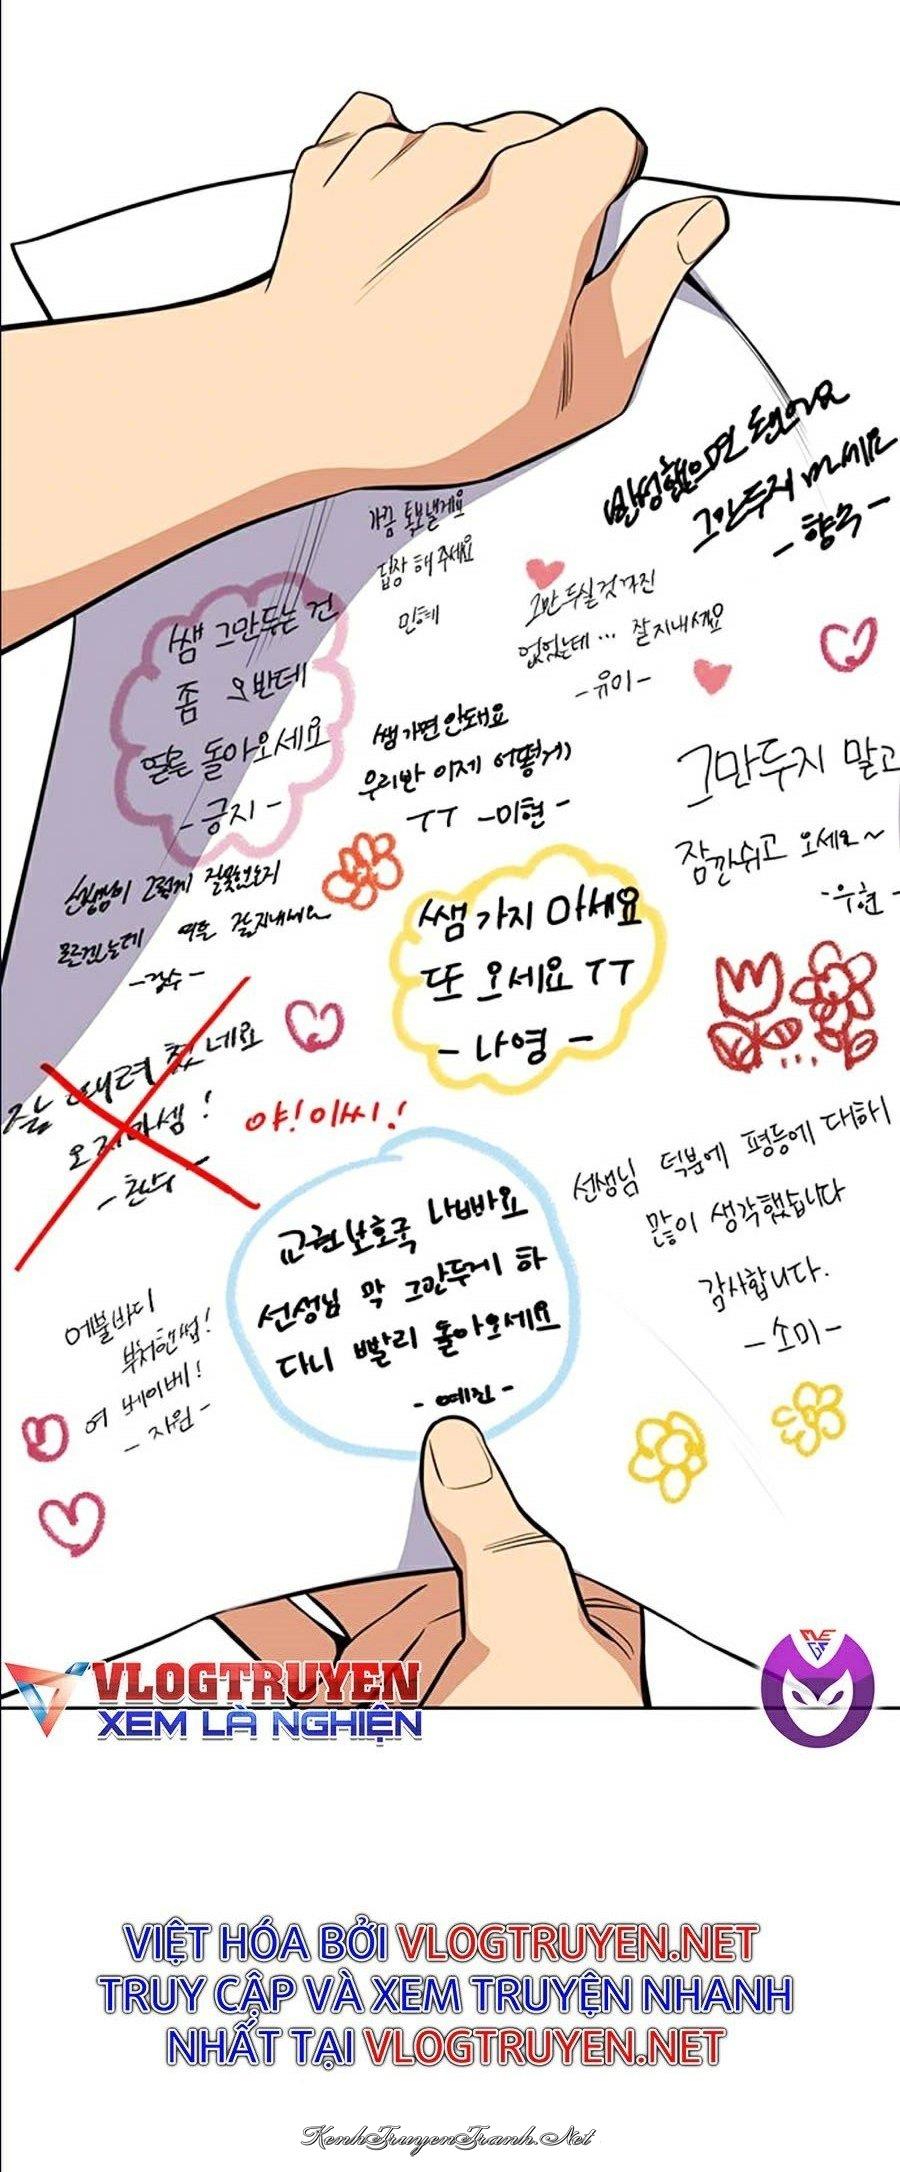 반성했으면 됐어요
그만두지 마세요
- 향숙 -
가끔 톡보낼게요
답장 해 주세요
민혜
그만 두실 것 까진
없었는데... 잘 지내세요
- 유이 -
쌤 그만두는 건
좀 오반데
얼른 돌아오세요
- 긍지 -
쌤 가면 안돼요
우리반 이제 어떻게
ㅜㅜ - 미현 -
그만두지 말고
잠깐 쉬고 오세요~
- 우현 -
선생님이 그렇게 잘못했는지
모르겠는데
잘 지내세요
- 경수 -
쌤 가지 마세요
또 오세요 ㅜㅜ
- 나영 -
때려 쳤네요
오지마셈!
- 환수 -
야! 이씨!
선생님 덕분에 평등에 대해
많이 생각했습니다
감사합니다.
- 소미 -
교권보호국 나빠요
선생님 막 그만두게 하
다니 빨리 돌아오세요
- 예진 -
에블바디
부처핸썹!
여 베이베!
- 지원 -
VLOGTRUYEN
XEM LÀ NGHIỆN
VIỆT HÓA BỞI VLOGTRUYEN.NET
TRUY CẬP VÀ XEM TRUYỆN NHANH
NHẤT TẠI VLOGTRUYEN.NET
KenhTruyenTranh.Net